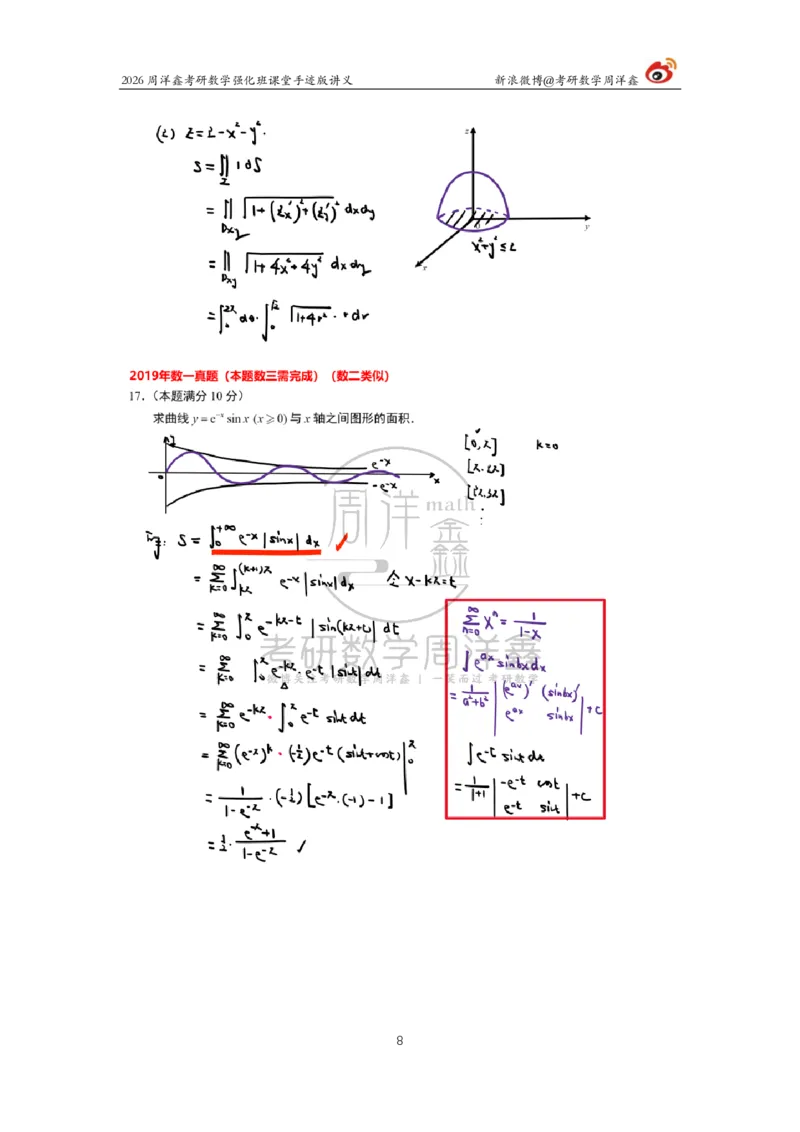 2026 周洋鑫考研数学强化班课堂手迹版讲义 新浪微博@考研数学周洋鑫
(2) z=2-x²-y².
S=∬_Σ 1 dS
=∬_{Dxy} √(1+(z'x)²+(z'y)²) dxdy
=∬_{Dxy} √(1+4x²+4y²) dxdy
=∫_0^{2π} dθ·∫_0^{√2} √(1+4r²)·r dr
z
y
x
x²+y²≤2
2019年数一真题（本题数三需完成）（数二类似）
17.（本题满分 10 分）
求曲线 y=e^{-x} sin x (x⩾0)与 x 轴之间图形的面积.
y
0
e^{-x}
-e^{-x}
x
[0,π] k=0
[π,2π]
[2π,3π]
⋮
S=∫_0^{+∞} e^{-x}|sinx|dx ✓
=∑_{k=0}^{∞} ∫_{kπ}^{(k+1)π} e^{-x}|sinx|dx 令 x-kπ=t
=∑_{k=0}^{∞} ∫_0^π e^{-kπ-t}|sin(kπ+t)|dt
=∑_{k=0}^{∞} ∫_0^π e^{-kπ}·e^{-t}|sint|dt
=∑_{k=0}^{∞} e^{-kπ}·∫_0^π e^{-t} sint dt
=∑_{k=0}^{∞} (e^{-π})^k·(-1/2)e^{-t}(sint+cost)|_0^π
=1/(1-e^{-π})·(-1/2)[e^{-π}·(-1)-1]
=1/2·(e^{-π}+1)/(1-e^{-π}) ✓
∑_{n=0}^{∞} x^n=1/(1-x)
∫e^{ax}sinbxdx
=1/(a²+b²) |(e^{ax})' (sinbx)'; e^{ax} sinbx|+C
∫e^{-t} sint dt
=1/(1+1) |-e^{-t} cost; e^{-t} sint|+C
周洋鑫
math
考研数学周洋鑫
微博关注考研数学周洋鑫 | 一笑而过 考研数学
8